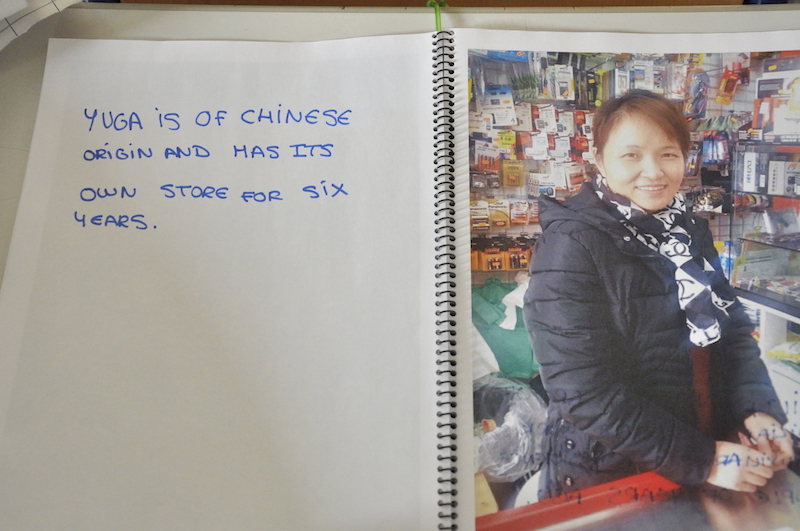 YUGA IS OF CHINESE
ORIGIN AND HAS ITS
OWN STORE FOR SIX
YEARS.